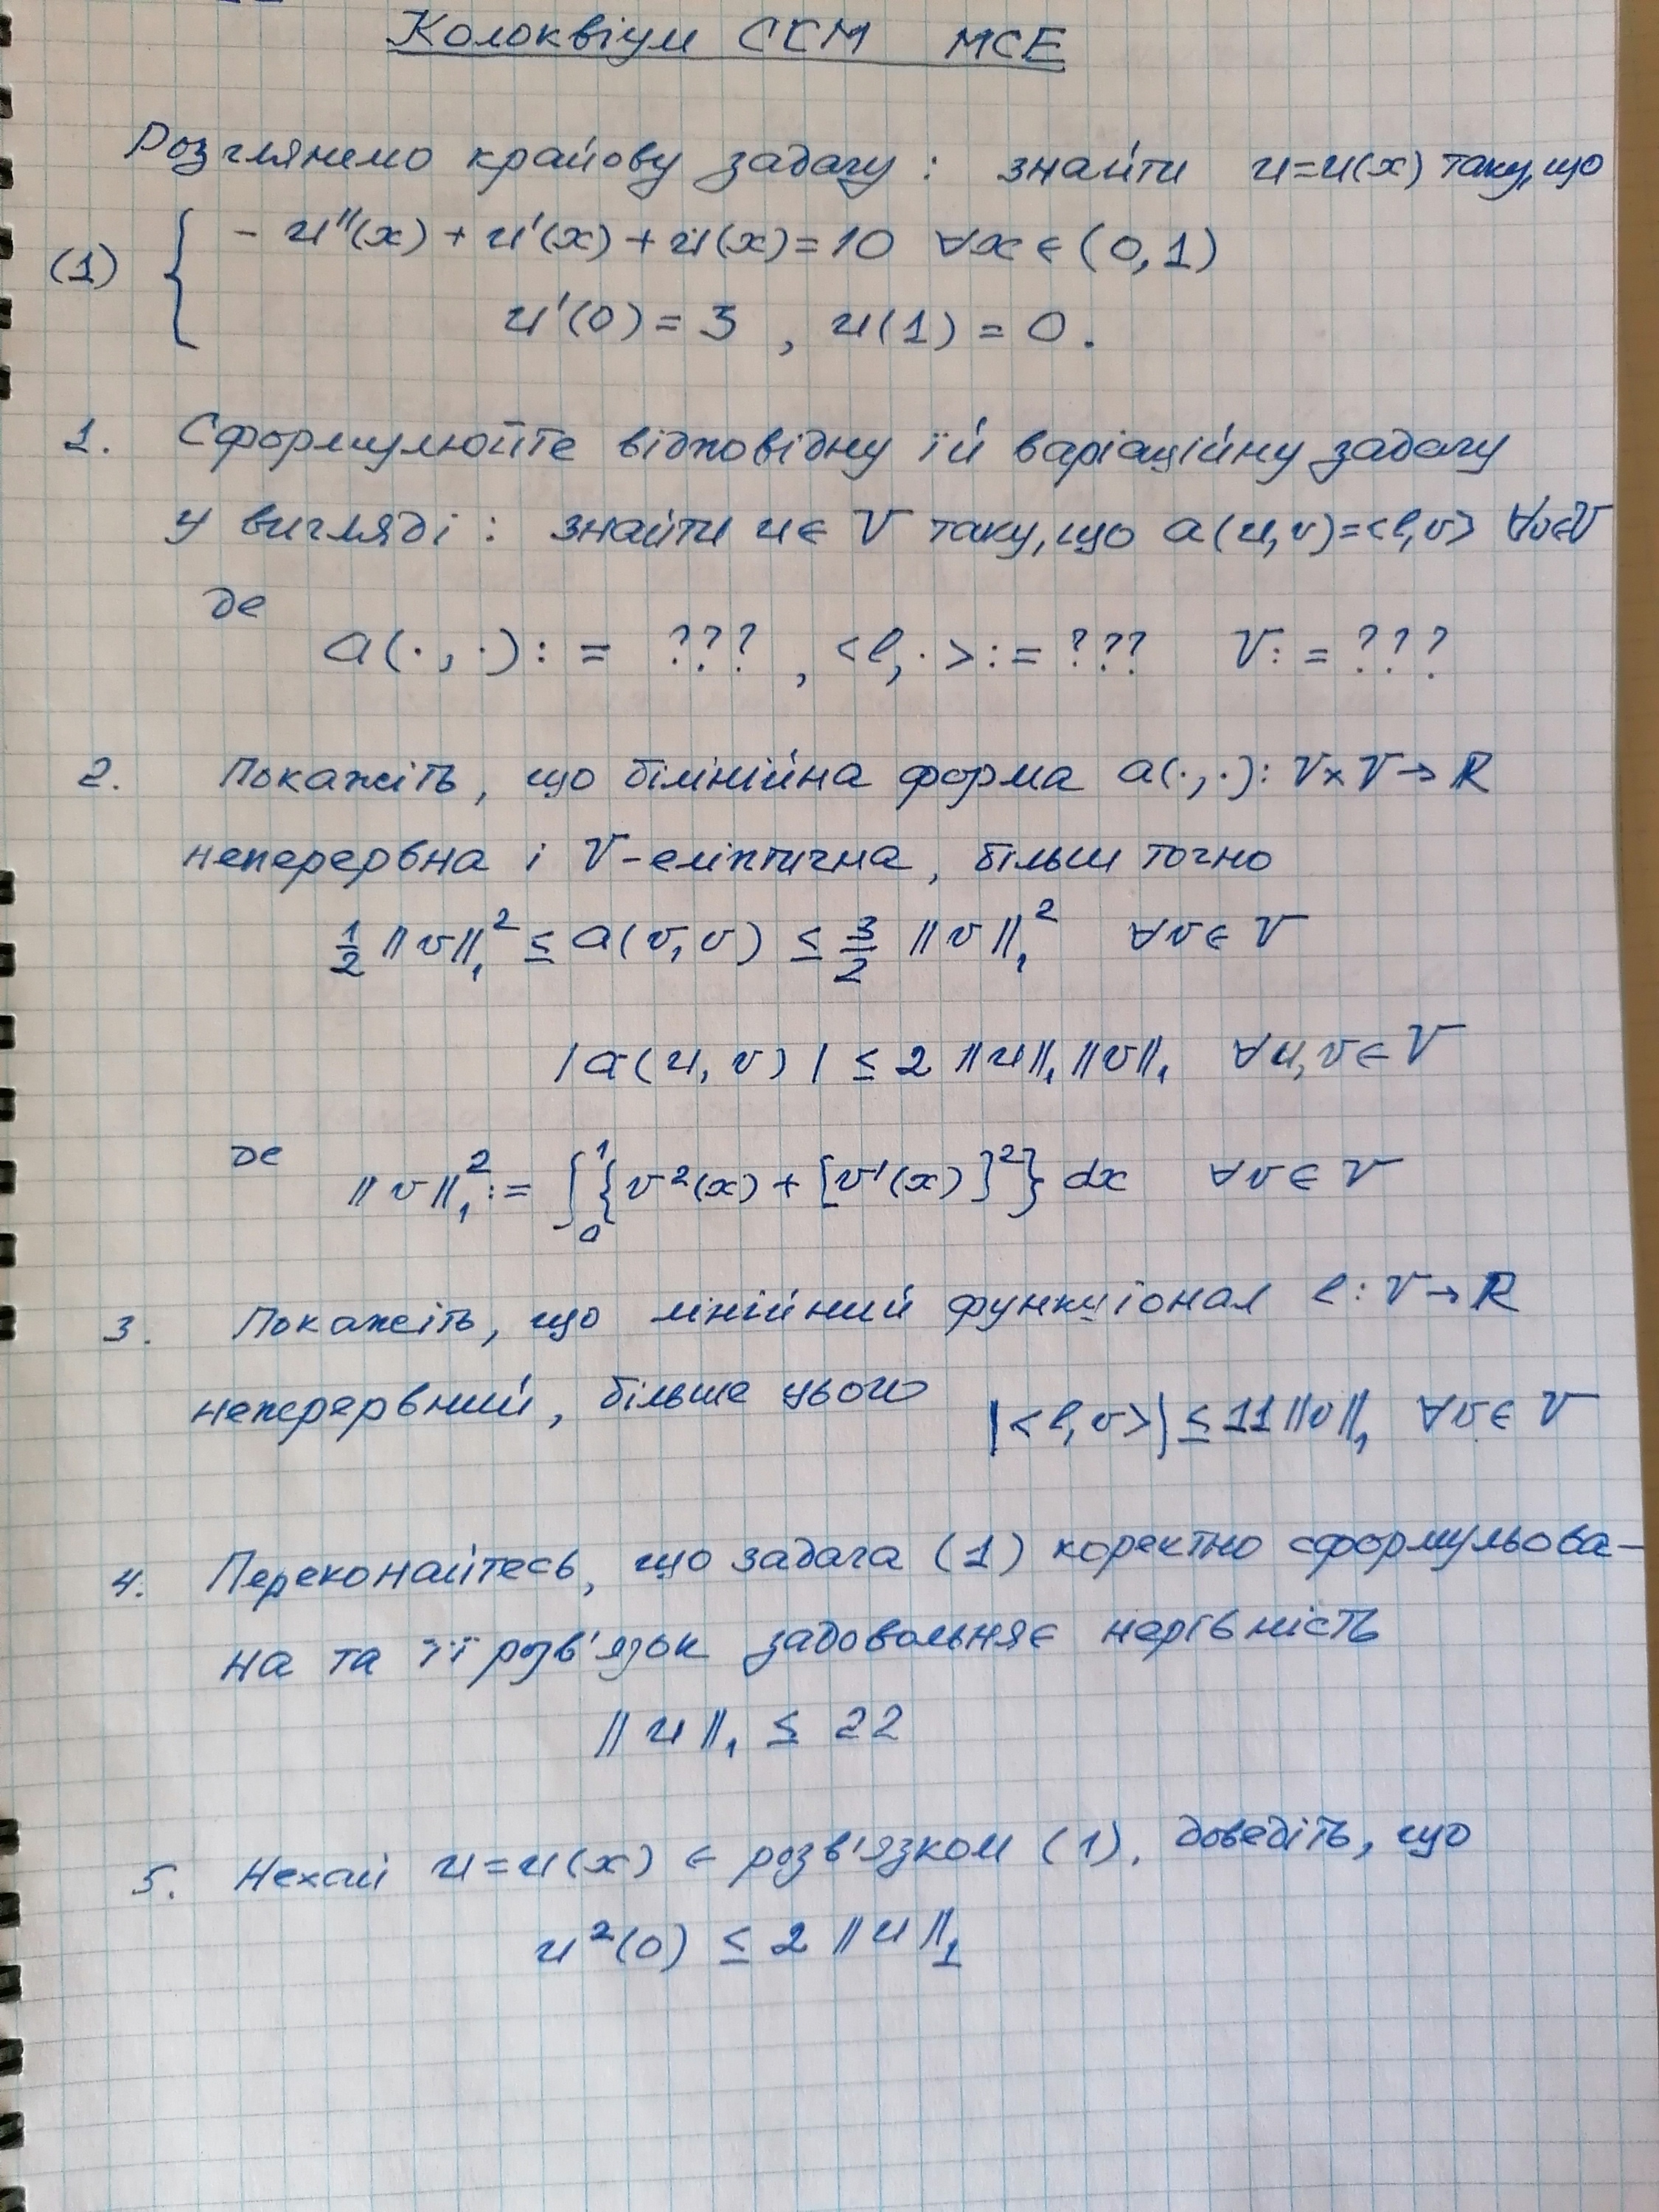 Колоквіум ССМ МСЕ
Розглянемо крайову задачу: знайти u=u(x) таку, що
(1) { - u''(x) + u'(x) + u(x) = 10 ∀x ∈ (0,1)
u'(0) = 3 , u(1) = 0.
1. Сформулюйте відповідну їй варіаційну задачу
у вигляді: знайти u ∈ V таку, що a(u,v)=<l,v> ∀v∈V
де
a(·,·) := ??? , <l,·> := ??? V := ???
2. Покажіть, що білінійна форма a(·,·): V×V→ℝ
неперервна і V-еліптична, більш точно
½ ‖v‖₁² ≤ a(v,v) ≤ 3/2 ‖v‖₁² ∀v ∈ V
|a(u,v)| ≤ 2 ‖u‖₁ ‖v‖₁ ∀u,v ∈ V
де ‖v‖₁² := ∫₀¹ {v²(x) + [v'(x)]²} dx ∀v ∈ V
3. Покажіть, що лінійний функціонал l: V→ℝ
неперервний, більше цього |<l,v>| ≤ 11 ‖v‖₁ ∀v ∈ V
4. Переконайтесь, що задача (1) коректно сформульова-
на та її розв'язок задовольняє нерівність
‖u‖₁ ≤ 22
5. Нехай u=u(x) є розв'язком (1), доведіть, що
u²(0) ≤ 2 ‖u‖₁